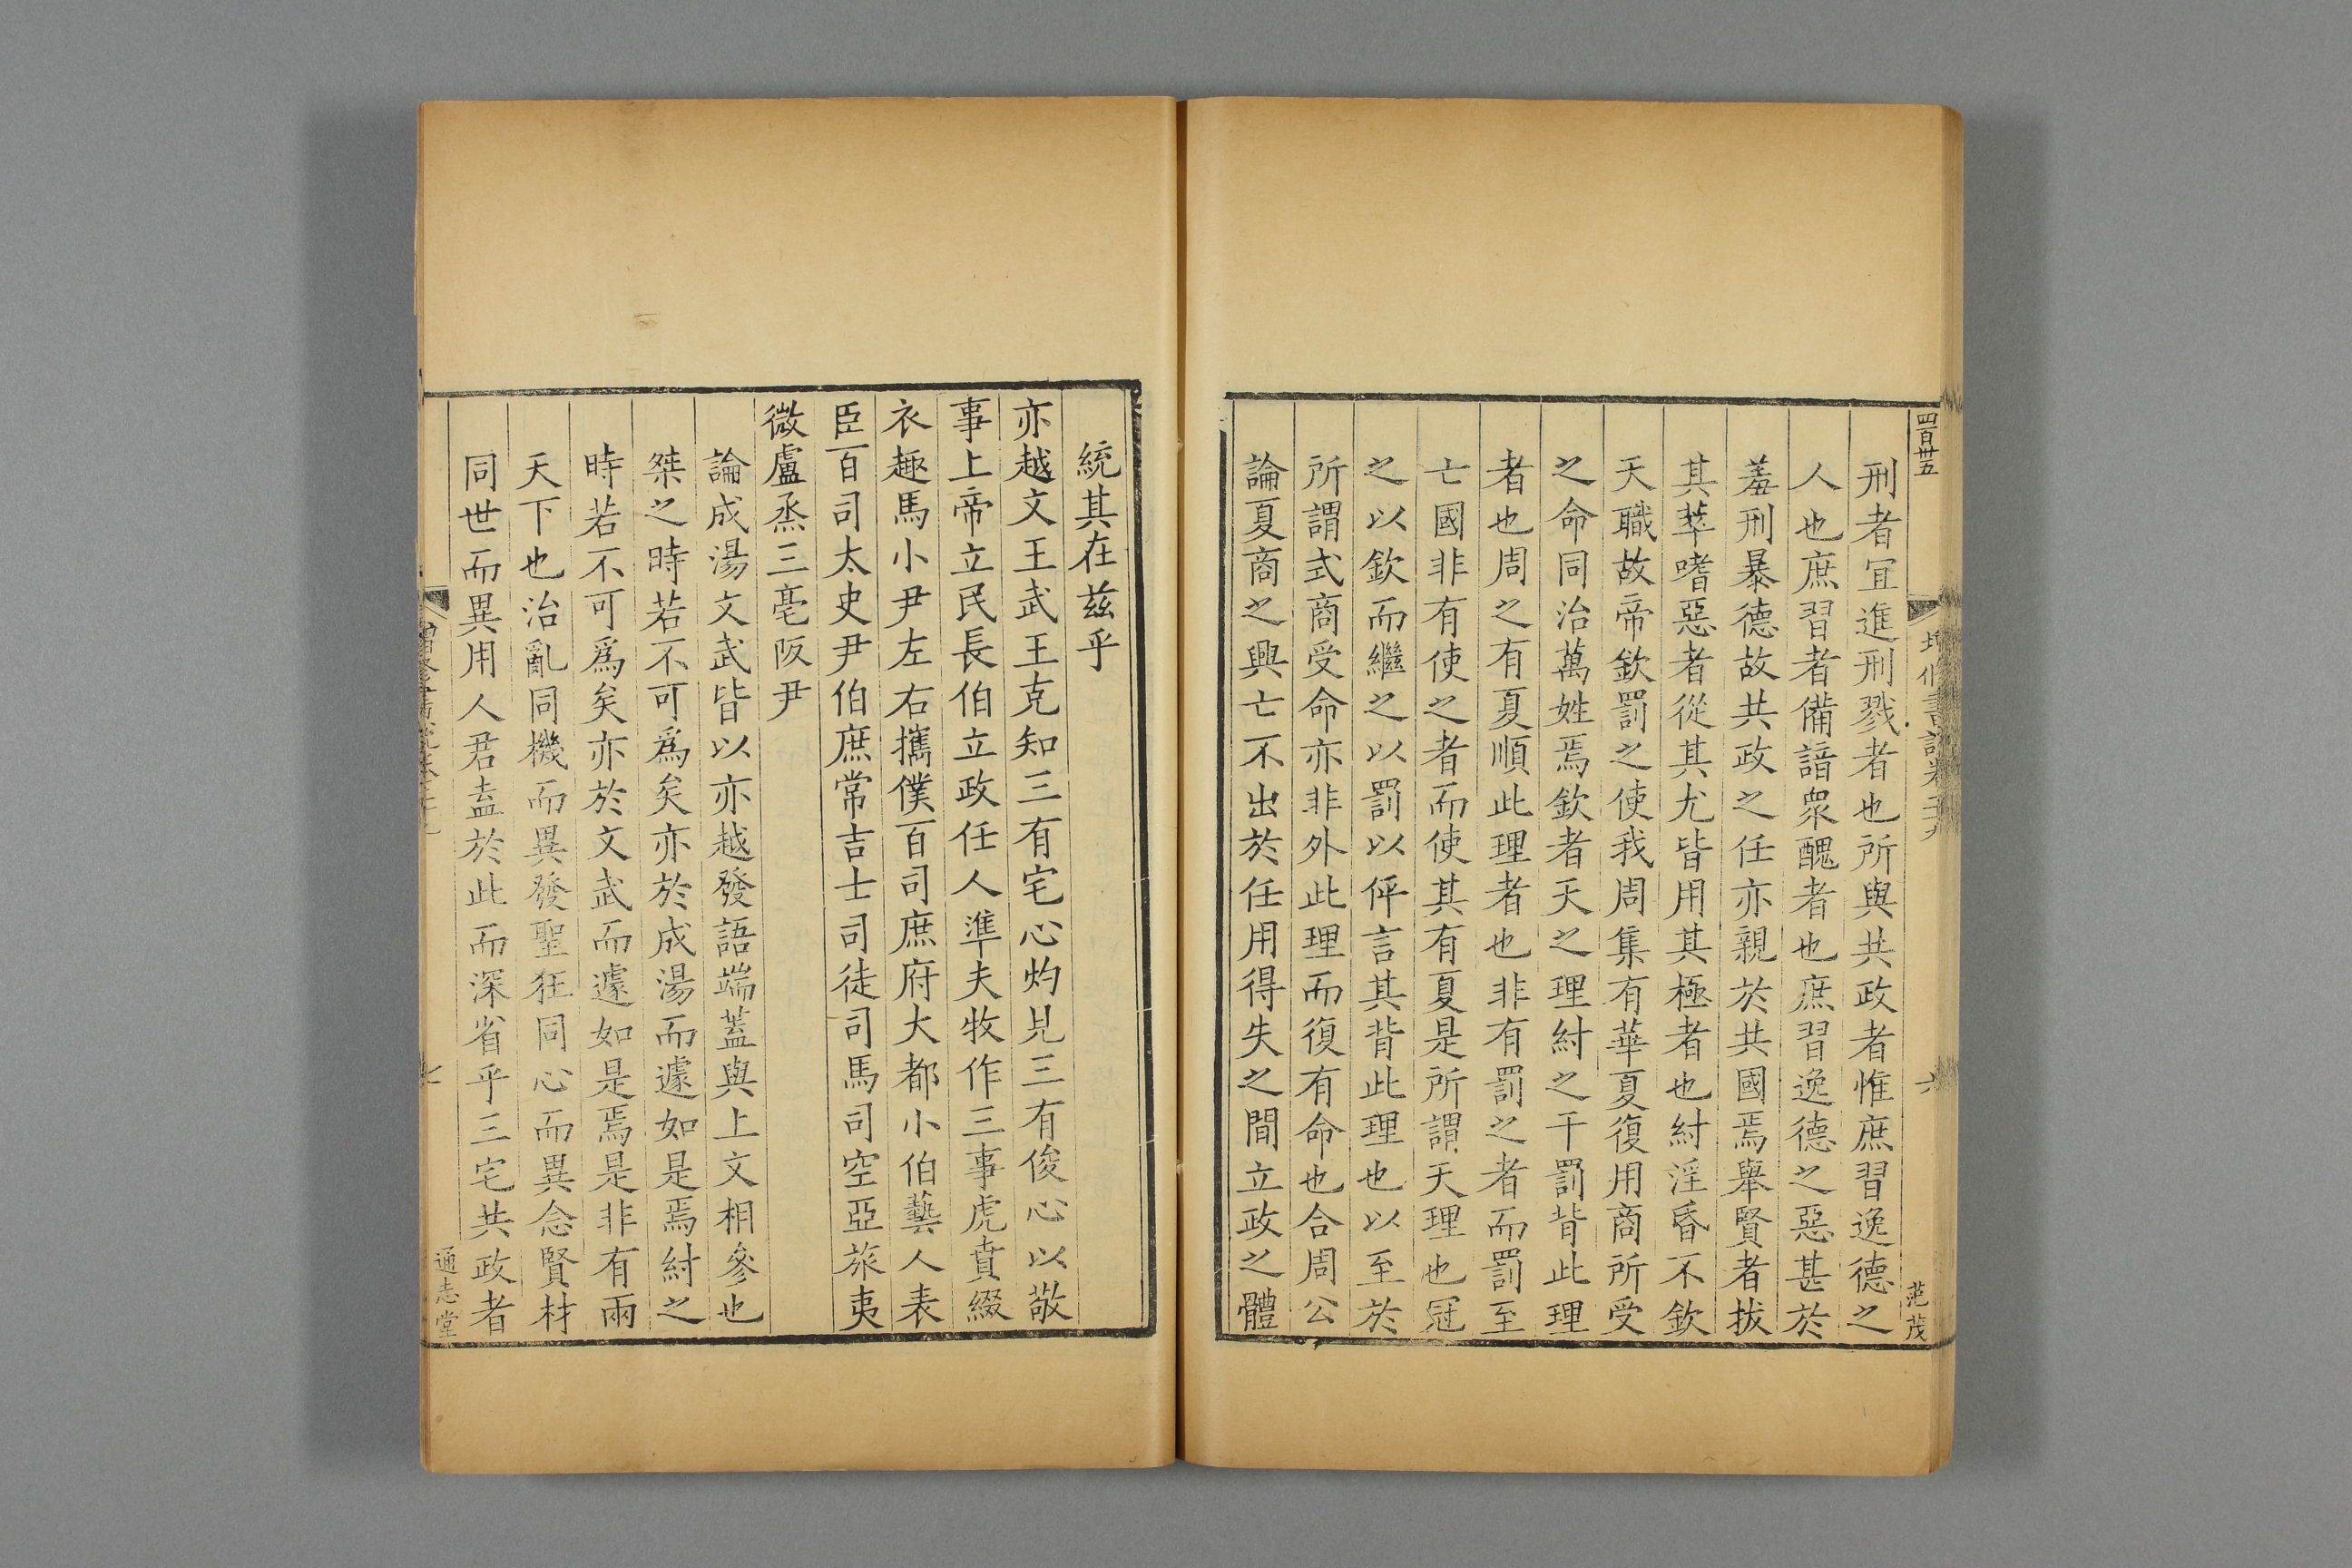 四百卅五
范茂
刑者宜進刑戮者也所與共政者惟庶習逸德之
人也庶習者備諳衆醜者也庶習逸德之惡甚於
羞刑暴德故共政之任亦親於共國焉舉賢者拔
其萃嗜惡者從其尤皆用其極者也紂淫昏不欽
天職故帝欽罰之使我周集有華夏復用商所受
之命同治萬姓焉欽者天之理紂之干罰背此理
者也周之有夏順此理者也非有罰之者而罰至
亡國非有使之者而使其有夏是所謂天理也冠
之以欽而繼之以罰以伻言其背此理也以至於
所謂式商受命亦非外此理而復有命也合周公
論夏商之興亡不出於任用得失之間立政之體
統其在茲乎
亦越文王武王克知三有宅心灼見三有俊心以敬
事上帝立民長伯立政任人準夫牧作三事虎賁綴
衣趣馬小尹左右攜僕百司庶府大都小伯藝人表
臣百司太史尹伯庶常吉士司徒司馬司空亞旅夷
微盧烝三亳阪尹
論成湯文武皆以亦越發語端蓋與上文相參也
桀之時若不可爲矣亦於成湯而遽如是焉紂之
時若不可爲矣亦於文武而遽如是焉是非有兩
天下也治亂同機而異發聖狂同心而異念賢材
同世而異用人君盍於此而深省乎三宅共政者
通志堂